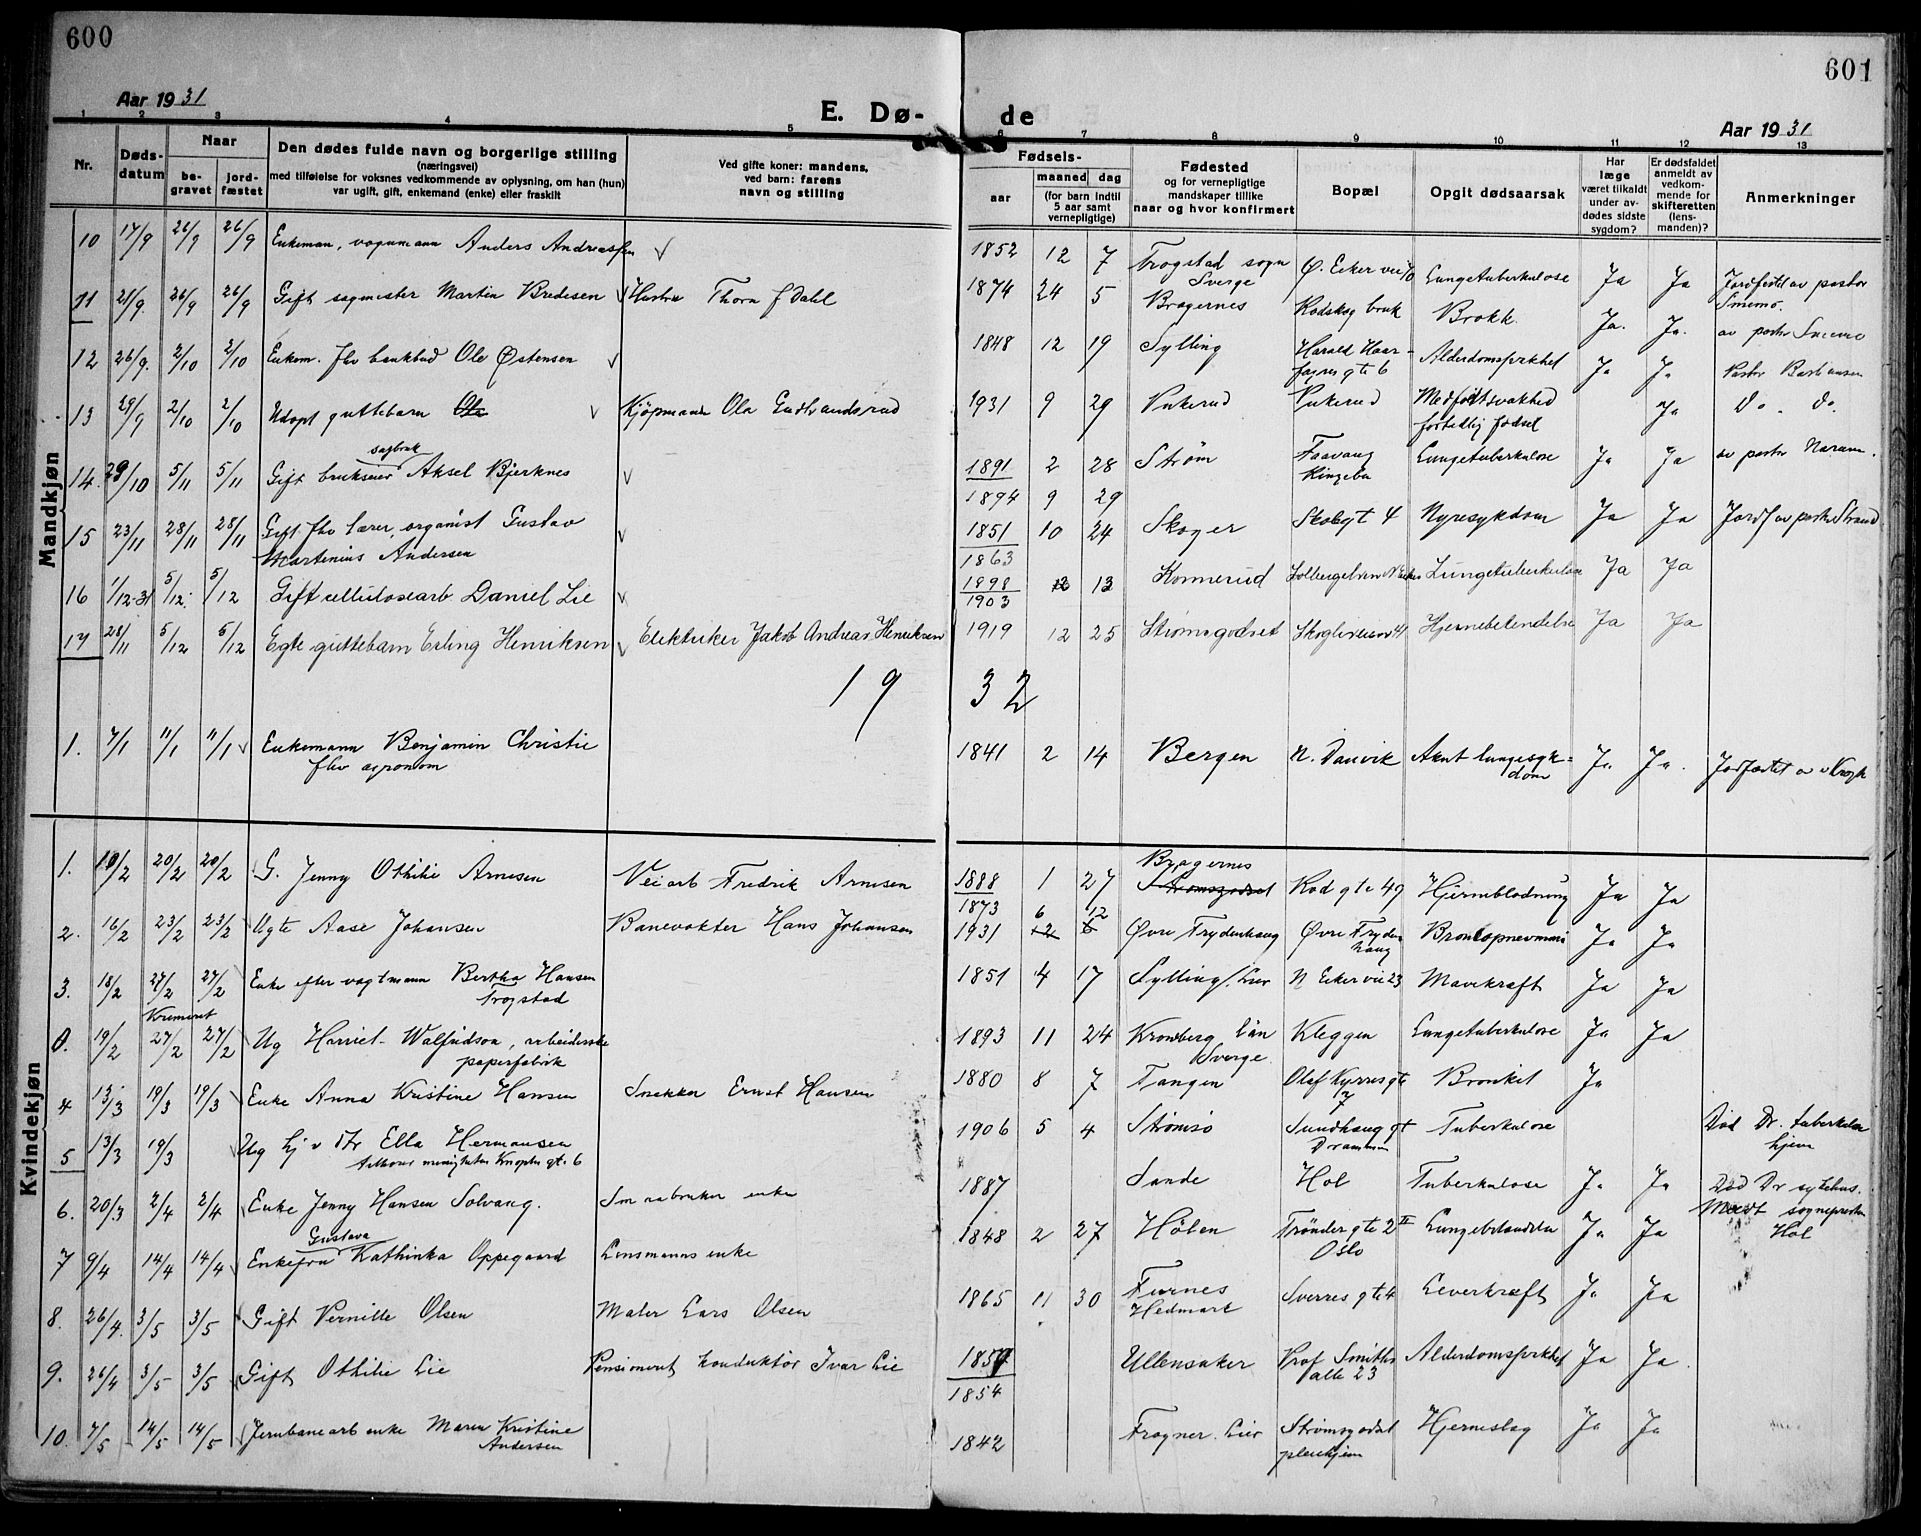 600
601
Aar 1931
E. Dø-
de
Aar 1931
1 2 3 4 5 6 7 8 9 10 11 12 13
Nr.
Døds-
datum
Naar
be-
gravet
jord-
fæstet
Den dødes fulde navn og borgerlige stilling
(næringsvei)
med tilføielse for voksnes vedkommende av oplysning, om han (hun)
var ugift, gift, enkemand (enke) eller fraskilt
Ved gifte koner: mandens,
ved barn: farens
navn og stilling
Fødsels-
aar
maaned dag
(for barn indtil
5 aar samt
vernepligtige)
Fødested
og for vernepligtige
mandskaper tillike
naar og hvor konfirmert
Bopæl
Opgit dødsaarsak
Har
læge
været tilkaldt
under av-
dødes sidste
sygdom?
Er dødsfaldet
anmeldt av
vedkom-
mende for
skifteretten
(lens-
manden)?
Anmerkninger
Mandkjøn
10 17/9 26/9 26/9 Enkeman, vognmann Anders Andreassen 1852 12 7 Trogstad sogn Sverge Ø. Eiker vei 70 Lungetuberkulose Ja Ja Jordfestet av pastor Smemo
11 21/9. 26/9 26/9 Gift sagmester Martin Bredesen Hustru Thora f Dahl 1874 24 5 Bragernes Rodskog bruk Brokk. Ja. Ja. av pastor Smemo
12 26/9. 2/10 2/10 Enkem. fhv bankbud Ole Østensen 1848 12 19 Sylling Harald Haar-
fagres gte 6 Alderdomssvakhet Ja Ja Pastor Bastiansen
13 29/9 2/10 2/10 Udøpt guttebarn Ola Kjøpmann Ola Gudbrandsrud 1931 9 29 Vukerud Vukerud Medfødtsvakhed
fortidlig fødsel Ja do. do.
14. 29/10 5/11 5/11 Gift brukseier sagbruk Aksel Bjerknes 1891 2 28 Strøm Faavang
Ringebu Lungetuberkulose Ja Ja av pastor
1894 9 29
15 23/11 28/11 28/11 Gift fhv lærer, organist Gustav
Martenius Andersen 1851 10 24 Skoger Skolegt 4 Nyresykdom Ja Ja Jordf av pastor Strand
1863
16 1/12-31 5/12. 5/12 Gift cellulosearb Daniel Lie 1898 12 13 Konnerud Solbergelven N Eiker Lungetuberkulose Ja Ja
1903
17 28/11 5/12 5/12 Egte guttebarn Erling Henriksen Elektriker Jakob Andreas Henriksen 1919 12 25 Strømsgodset Skogliveien 41 Hjernebetendelse Ja Ja
19 32
1. 7/1 11/1 11/1 Enkemann Benjamin Christie
fhv agronom 1841 2 14 Bergen N. Danvik Akut lungesyk-
dom Ja Ja. Jordfæstet av v Krogh
Kvindekjøn
1. 10/2 20/2 20/2 G. Jenny Othilie Arnesen Veiarb Fredrik Arnesen 1888 1 27 Bragernes
Strømsgodset Rodgte 49 Hjerneblødning Ja Ja
1873 6 12
2. 16/2 23/2 23/2 Egte Aase Johansen Banevokter Hans Johansen 1931 12 6 Øvre Frydenhaug Øvre Fryden
haug Bronkopnevmoni Ja Ja
3. 18/2 27/2 27/2 Enke efter vogtmann Bertha Hansen
Trogstad 1851 4 17 Sylling/Lier N Eiker vei 23 Mavekræft Ja Ja
Kremeret
0. 19/2 27/2 27/2 Ug Harriet Walfridson, arbeiderske
paperfabrik 1893 11 24 Kronberg Län
Sverge. Kleggen Lungetuberkulose Ja Ja
4 13/3 19/3 19/3 Enke Anna Kristine Hansen Snekker Ernst Hansen 1880 8 7 Tangen Olaf Kyrresgte
7 Bronkit Ja
5 13/3 19/3 Ug hj v Str Ella Hermansen
Tilhører menigheten gt. 6 1906 5 4 Strømsø Sundhauggt
Drammen Tuberkulose Død Dr. tuberkulose
hjem
6. 20/3 2/4 2/4 Enke Jenny Hansen Solvang. Smaabruker enke 1887 Sande Hol Tuberkulose Ja Ja Død Dr sykehus.
sogneprest
Hol
7 9/4 14/4 14/4 Enkefru Gustava Kathinka Oppegaard Lensmanns enke 1848 2 27 Hølen Trøndergte 2 II
Oslo Lungebetændelse Ja Ja
8. 26/4. 3/5 3/5 Gift Pernille Olsen Maler Lars Olsen 1865 11 30 Furnes
Hedmark Sverresgte 4 Leverkræft Ja Ja
9. 26/4 3/5 3/5 Gift Othilie Lie Pensioneret konduktør Ivar Lie 1859 Ullensaker Prof Smiths
alle 23 Alderdomssvakhet Ja Ja.
1854
10. 7/5 14/5 14/5 Jernbanearb enke Maren Kristine
Andersen 1842 Frogner Lier Strømsgodset
pleiehjem Hjerneslag Ja Ja